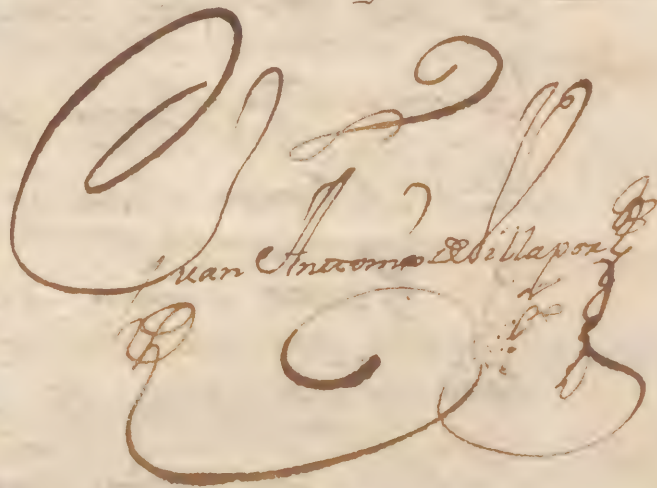 Juan Antonio de Villapor